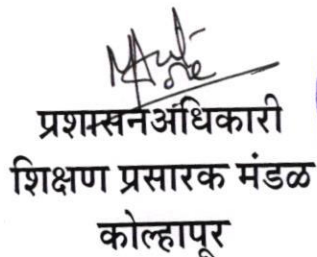 प्रशासन अधिकारी
शिक्षण प्रसारक मंडळ
कोल्हापूर